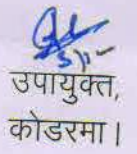 उपायुक्त,
कोडरमा।